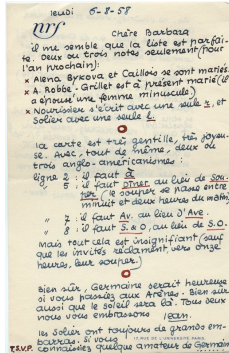 Jeudi 6-8-58
nrf
Chère Barbara
il me semble que la liste est parfai-
te. Deux ou trois notes seulement (pour
l'an prochain):
x Alena Bykova et Caillois se sont mariés.
x A. Robbe-Grillet est à présent marié (il
a épousé une femme minuscule)
x Nourissier s'écrit avec une seule r, et
Solier avec une seule l.
la carte est très gentille, très joyeu-
se. Avec, tout de même, deux ou
trois anglo-américanismes:
ligne 2: il faut à
" 5: il faut Dîner au lieu de Sou-
per (le souper se passe entre
minuit et deux heures du matin)
" 7: il faut Av. au lieu d'Ave.
" 8: il faut S. & O, au lieu de S.O.
Mais tout cela est insignifiant (sauf
que les invités réclament, vers onze
heures, leur souper.)
Bien sûr, Germaine serait heureuse
si vous passiez aux Arènes. Bien sûr
aussi que le soleil sera là. Tous deux
nous vous embrassons Jean.
les Solier ont toujours de grands em-
barras. Si vous
17, RUE DE L'UNIVERSITÉ PARIS
T.S.V.P. connaissiez quelque amateur de Germain